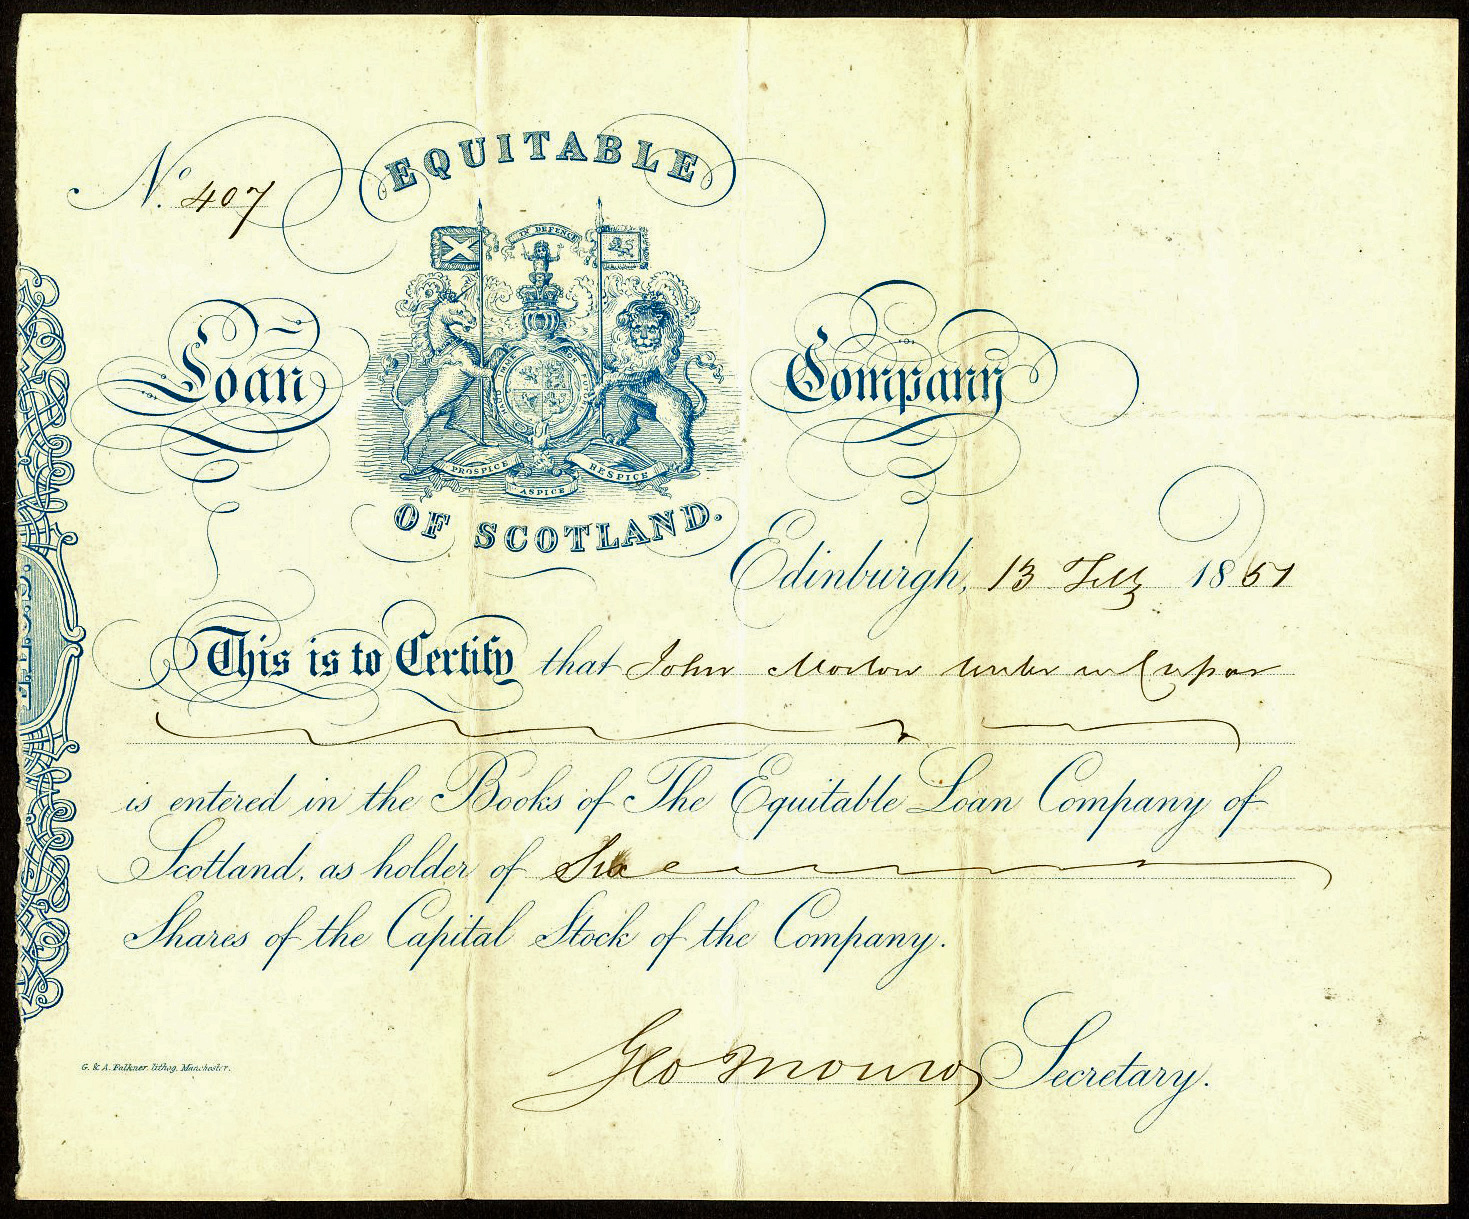 EQUITABLE
No. 407
IN DEFENCE
Loan Company
PROSPICE RESPICE
ASPICE
OF SCOTLAND.
Edinburgh, 13 Feby 1851
This is to Certify that John Morton Writer in Cupar
is entered in the Books of The Equitable Loan Company of
Scotland, as holder of Six
Shares of the Capital Stock of the Company.
Geo Monro Secretary.
G. & A. Falkner. lithog. Manchester.